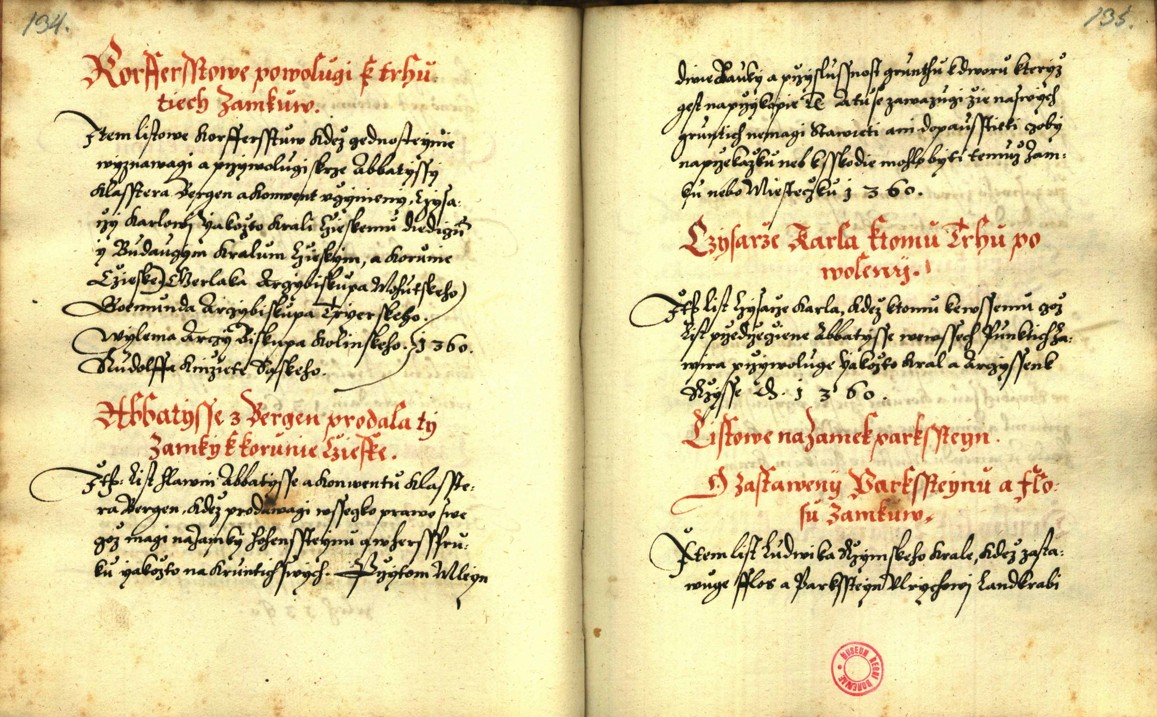 134.
Korfferſſtowe powolugi k trhu
tiech Zamkuw.
Item liſtowe Korfferſſtuw kdez gednoſteynie
wyznawagi a przywolugi ſkrze Abbatyſſy
Klaſſtera Bergen a konwent vczinieny, Czyſa-
rzy Karlowi yakozto Krali Czieskemu diediczuom
y Budauczym Kraluom Czieskym, a Korunie
Czieske) Gerlaka Arczybiskupa Mohutskeho)
Boemunda Arczybiskupa Trzerskeho.
Wylema Arczybiskupa Kolinskeho. 1360.
Rudolffa Kniziete Saskeho.
Abbatyſſe z Bergen prodala ty
Zamky k korunie Czieske.
Itē: Liſt hlawni Abbatyſſe a Konwentu Klaſſte-
ra Bergen, kdez prodawagi wſſeczko prawo ſwe
gez magi na zamky Hohenſſteynu a wherſſpru-
ku yakozto na Kruntich ſwych. Przytom Mleyn
135.
dwie Lauky a przyſluſſnoſt grunthu k dworu kteryz
geſt na przykopie ꝛc̄ A tu ſe zawazugi zie na ſwych
gruntich nemagi Stawieti ani dopauſſtieti czoby
na przekazku neb k ſſkodie mohlo byti temuz Zam-
ku nebo Mieſteczku 1360.
Czyſarze Karla k tomu Trhu po
woleny.
Itē Liſt Czyſarze Karla, kdez k tomu ke wſſemu goz
Liſt przedczegiene Abbatyſſe we wſſech Punktich za-
wira przywoluge yakozto Kral a Arczyſſenk
Rzyſſe ꝛc̄. 1360.
Liſtowe na Zamek parkſſteyn.
O zaſtaweny Parkſſteynu a flo-
ſu Zamkuw.
Item liſt Ludwika Rzymskeho Krale, kdez zaſta-
wuge fflos a Parkſſteyn Vlrychowi Landkrabi
MUSEUM REGNI BOHEMIAE